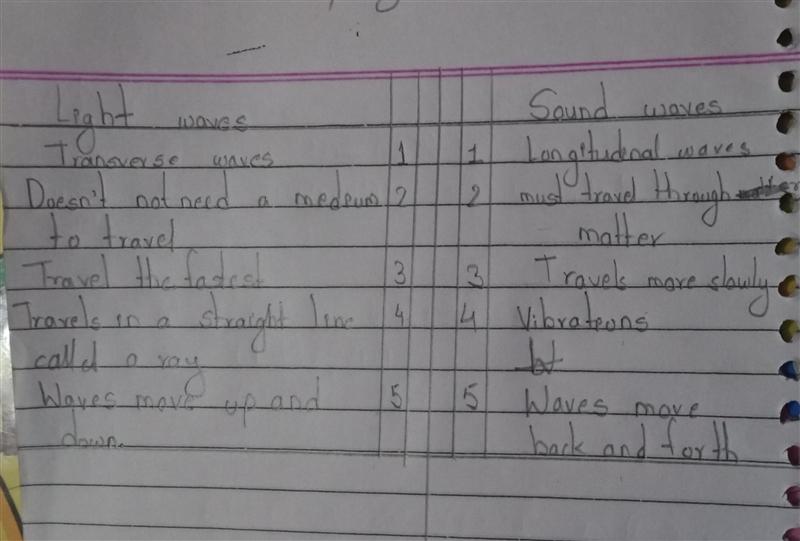 Light waves Sound waves
Transverse waves 1 1 Longitudenal waves
Doesn't not need a medeum 2 2 must travel through
to travel matter
Travel the fastest 3 3 Travels more slowly
Travels in a straight line 4 4 Vibrateons
calld a ray
Waves move up and 5 5 Waves move
down. back and forth